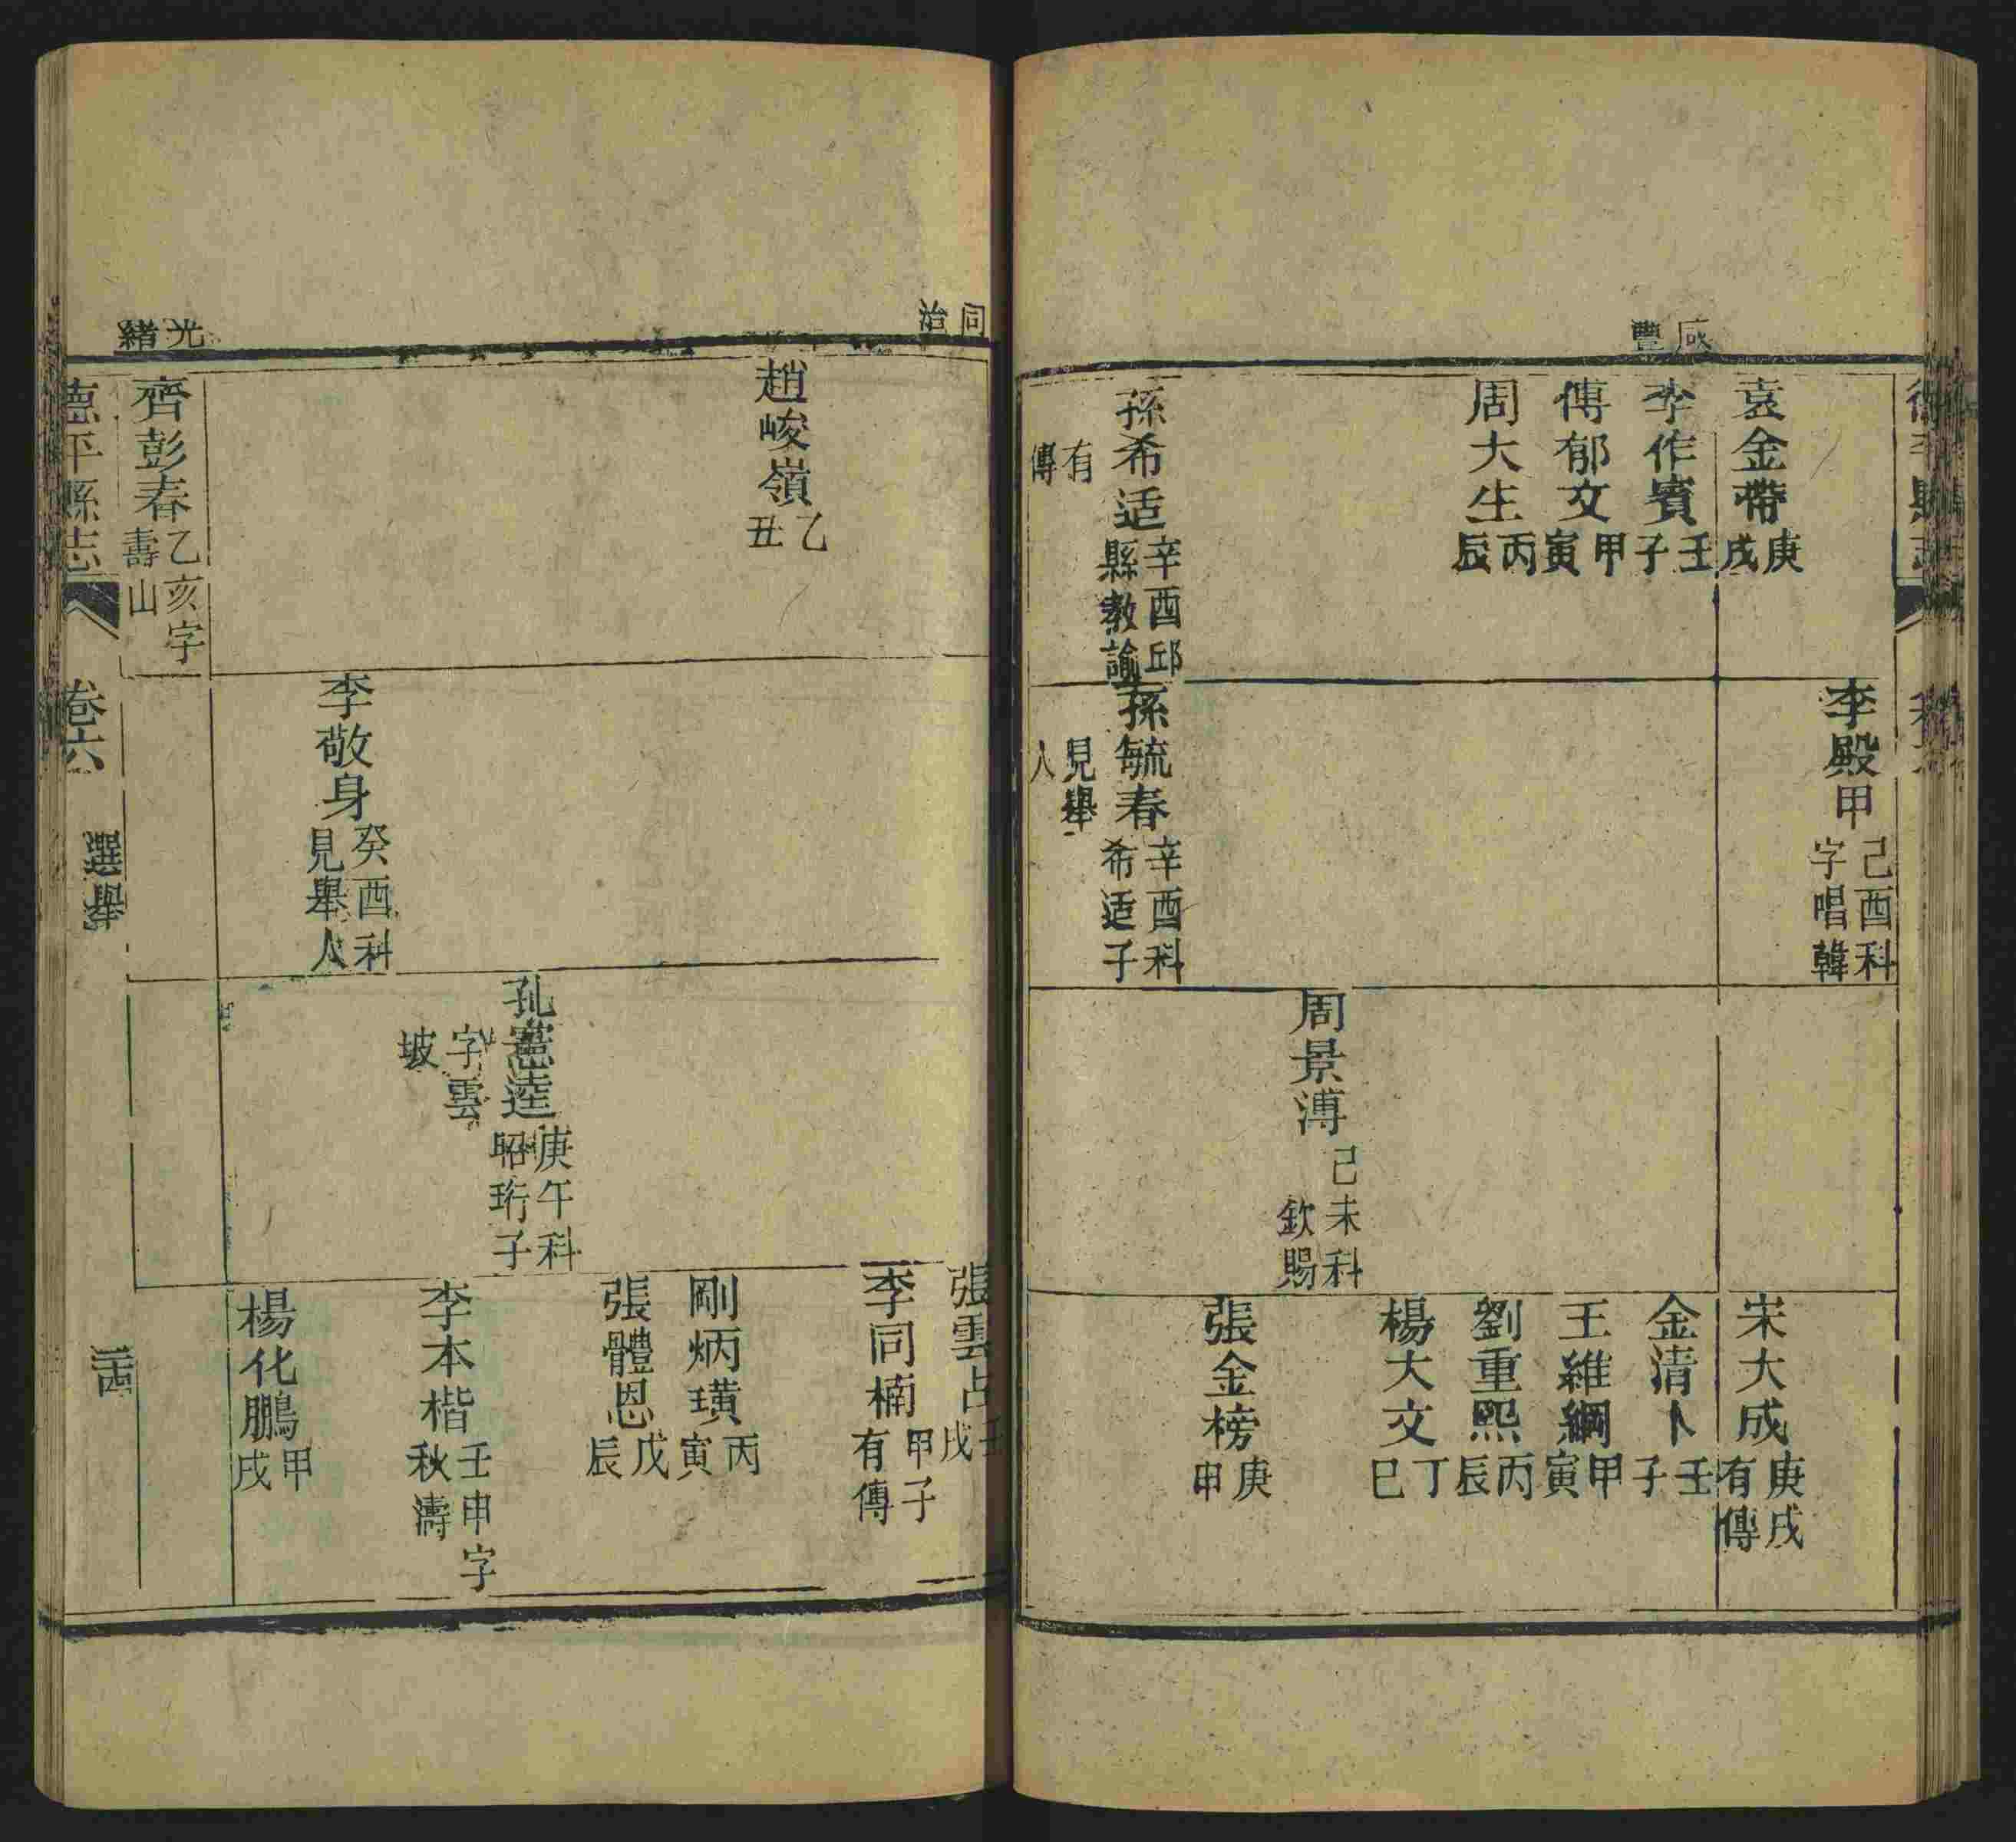 咸豐
德平縣志
袁金帶庚戌
李作賓壬子
傅郁文甲寅
周大生丙辰
孫希适辛酉邱縣教諭
有傳
李殿甲己酉科字唱韓
孫毓春辛酉科希适子
見舉人
周景溥己未科欽賜
宋大成庚戌有傳
金清卜壬子
王維綱甲寅
劉重熙丙辰
楊大文丁巳
張金榜庚申
同治
光緒
趙峻嶺乙丑
齊彭春乙亥字壽山
李敬身癸酉科見舉人
孔憲逵庚午科昭珩子
字雲坡
張雲占壬戌
李同楠甲子有傳
剛炳璜丙寅
張體恩戊辰
李本楷壬申字秋濤
楊化鵬甲戌
德平縣志
卷六
選舉